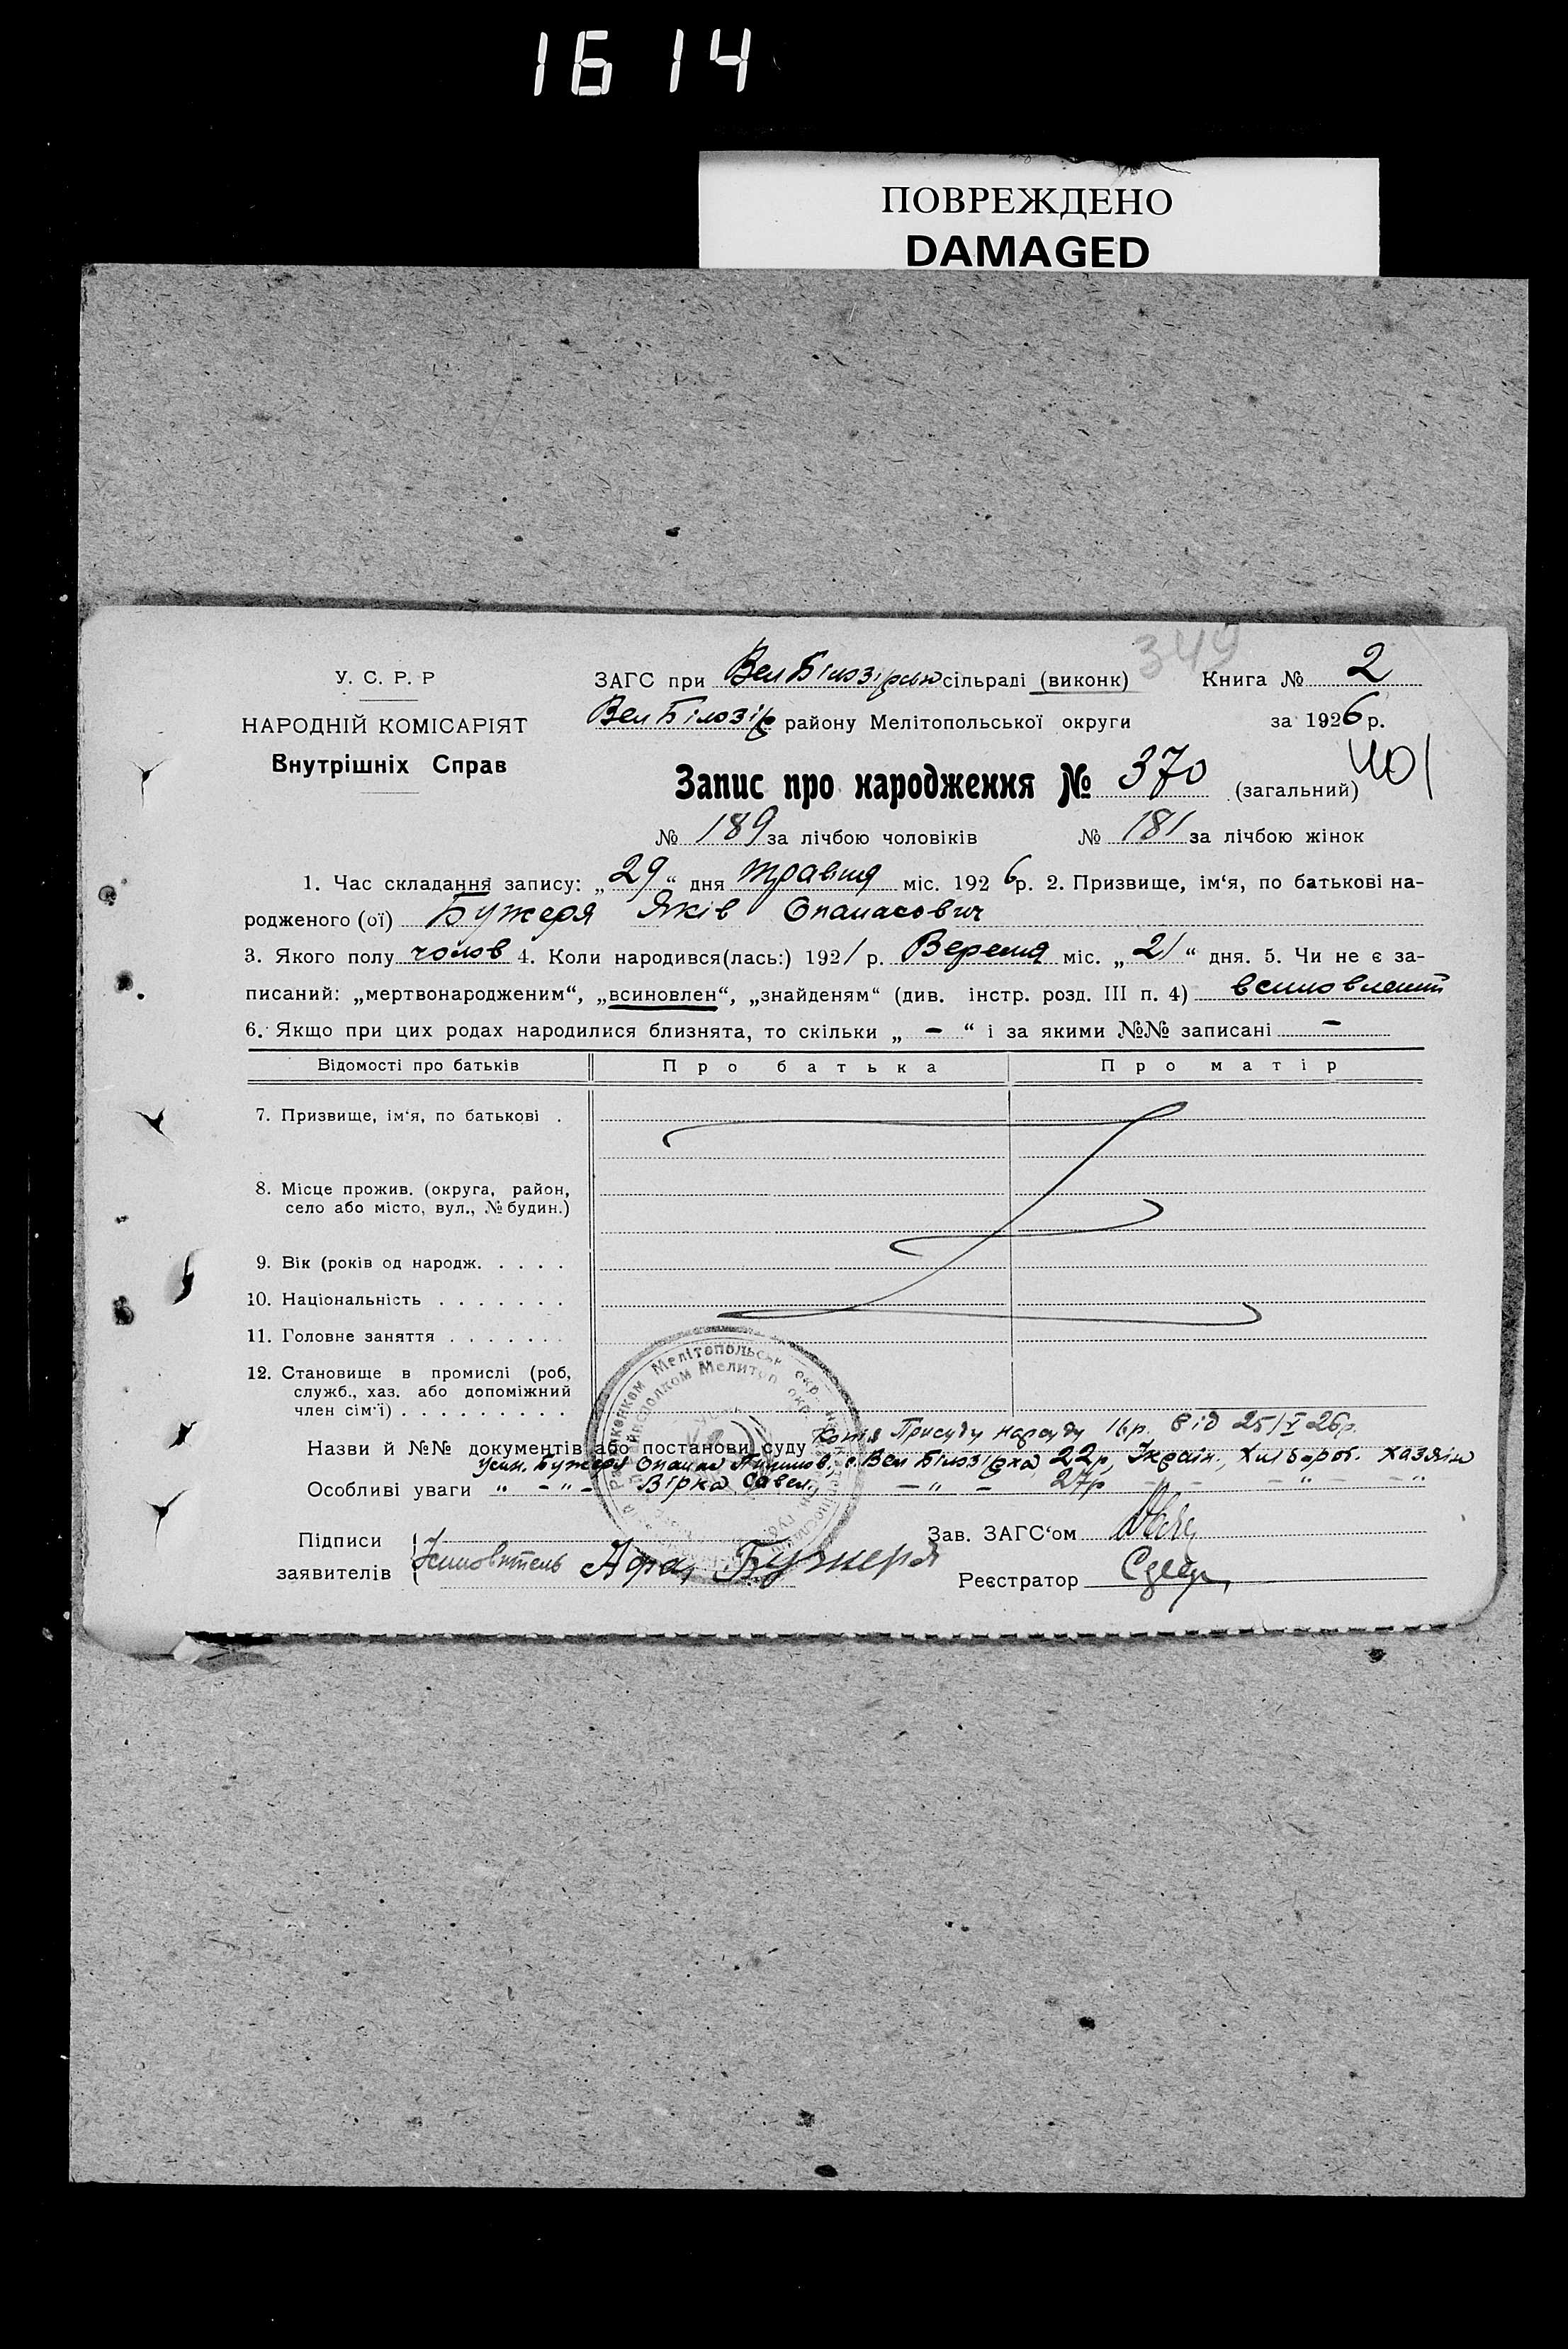 1614
ПОВРЕЖДЕНО
DAMAGED
349
У. С. Р. Р
НАРОДНІЙ КОМІСАРІЯТ
Внутрішніх Справ
ЗАГС при Вел Білозірськ сільраді (виконк) Книга № 2
Вел Білозір району Мелітопольської округи за 1926 р.
401
Запис про народження № 370 (загальний)
№ 189 за лічбою чоловіків № 181 за лічбою жінок
1. Час складання запису: „29“ дня травня міс. 1926р. 2. Призвище, ім‘я, по батькові на-
родженого (ої) Бужеря Яків Опанасович
3. Якого полу чолов 4. Коли народився(лась:) 1921 р. Вересня міс. „21“ дня. 5. Чи не є за-
писаний: „мертвонародженим“, „всиновлен“, „знайденям“ (див. інстр. розд. III п. 4) всиновлений
6. Якщо при цих родах народилися близнята, то скільки „ - “ і за якими №№ записані -
Відомості про батьків Про батька Про матір
7. Призвище, ім‘я, по батькові .
8. Місце прожив. (округа, район,
село або місто, вул., № будин.)
9. Вік (років од народж. . . . .
10. Національність . . . . . . .
11. Головне заняття . . . . . . .
12. Становище в промислі (роб,
служб., хаз. або допоміжний
член сім‘ї) . . . . . . . . .
Назви й №№ документів або постанови суду Копія Присуду нарсуду 16р. від 25/V 26р.
Усин. Бужеря Опанас с. Вел Білозірка, 22р, Україн., Хлібороб. хазяїн
Особливі уваги „ - „ - Вірка Савел. - „ - 27р - - - „ - - „
Підписи
заявителів
Усиновитель Афа, Бужеря
Зав. ЗАГС‘ом
Реєстратор